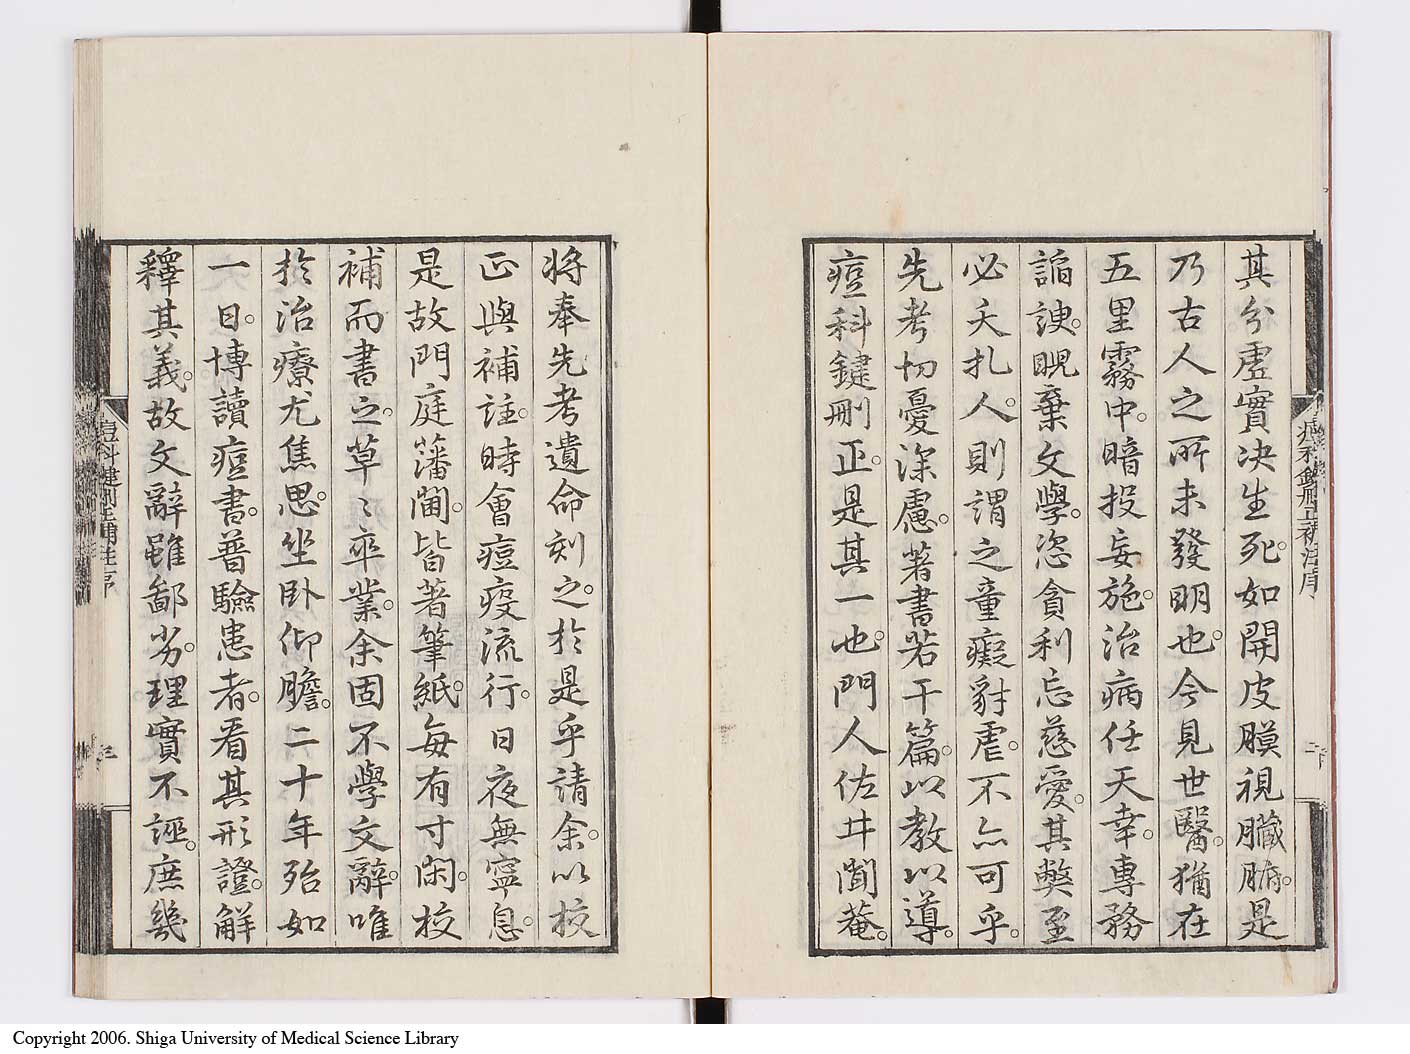 其分虚實决生死。如開皮膜視臓腑。是
乃古人之所未發明也。今見世醫。猶在
五里霧中。暗投妄施。治病任天幸。專務
謟諛。睨棄文學。恣貪利忘慈愛。其獘至
必夭札人。人則謂之童癡豺虐。不亦可乎。
先考切憂深慮。著書若干篇。以教以導。
痘科鍵刪正。是其一也。門人佐井聞菴。
將奉先考遺命刻之。於是乎請余。以校
正與補註。時會痘疫流行。日夜無寧息。
是故門庭藩閫。皆著筆紙。每有寸閑。校
補而書之。草〻卒業。余固不學文辭。唯
於治療尤焦思。坐卧仰膽。二十年殆如
一日。博讀痘書。普驗患者。看其形證。解
釋其義。故文辭雖鄙劣。理實不誣。庶幾
痘科鍵刪正補註序
二
痘科鍵刪正補註序
三
Copyright 2006. Shiga University of Medical Science Library